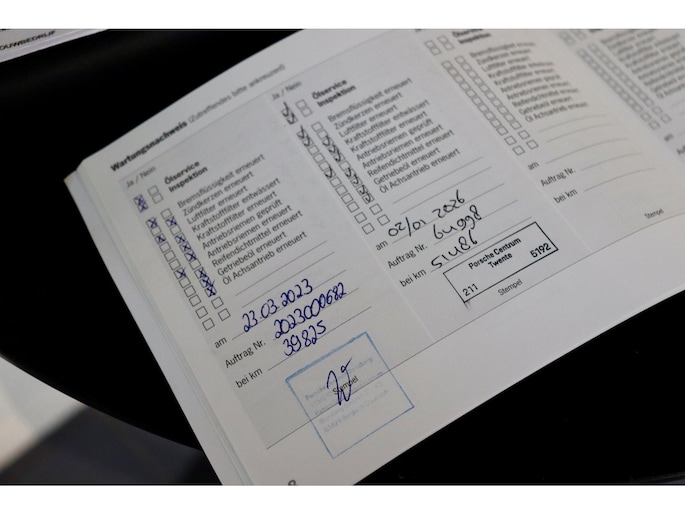 OUWBEDRIJF
Wartungsnachweis (Zutreffendes bitte ankreuzen!)
Ja / Nein
Ölservice
Inspektion
Bremsflüssigkeit erneuert
Zündkerzen erneuert
Luftfilter erneuert
Kraftstofffilter entwässert
Kraftstofffilter erneuert
Antriebsriemen geprüft
Antriebsriemen erneuert
Reifendichtmittel erneuert
Getriebeöl erneuert
Öl Achsantrieb erneuert
am 23.03.2023
Auftrag Nr. 2023000682
bei km 39825
Stempel
Ja / Nein
Ölservice
Inspektion
Bremsflüssigkeit erneuert
Zündkerzen erneuert
Luftfilter erneuert
Kraftstofffilter entwässert
Kraftstofffilter erneuert
Antriebsriemen geprüft
Antriebsriemen erneuert
Reifendichtmittel erneuert
Getriebeöl erneuert
Öl Achsantrieb erneuert
am 02/01 2026
Auftrag Nr.
bei km 51486
Porsche Centrum
Twente
211 5192
Stempel
Ja / Nein
Ölservice
Inspektion
Bremsflüssigkeit erneuert
Zündkerzen erneuert
Luftfilter erneuert
Kraftstofffilter entwässert
Kraftstofffilter erneuert
Antriebsriemen geprüft
Antriebsriemen erneuert
Reifendichtmittel erneuert
Getriebeöl erneuert
Öl Achsantrieb erneuert
am
Auftrag Nr.
bei km
Stempel